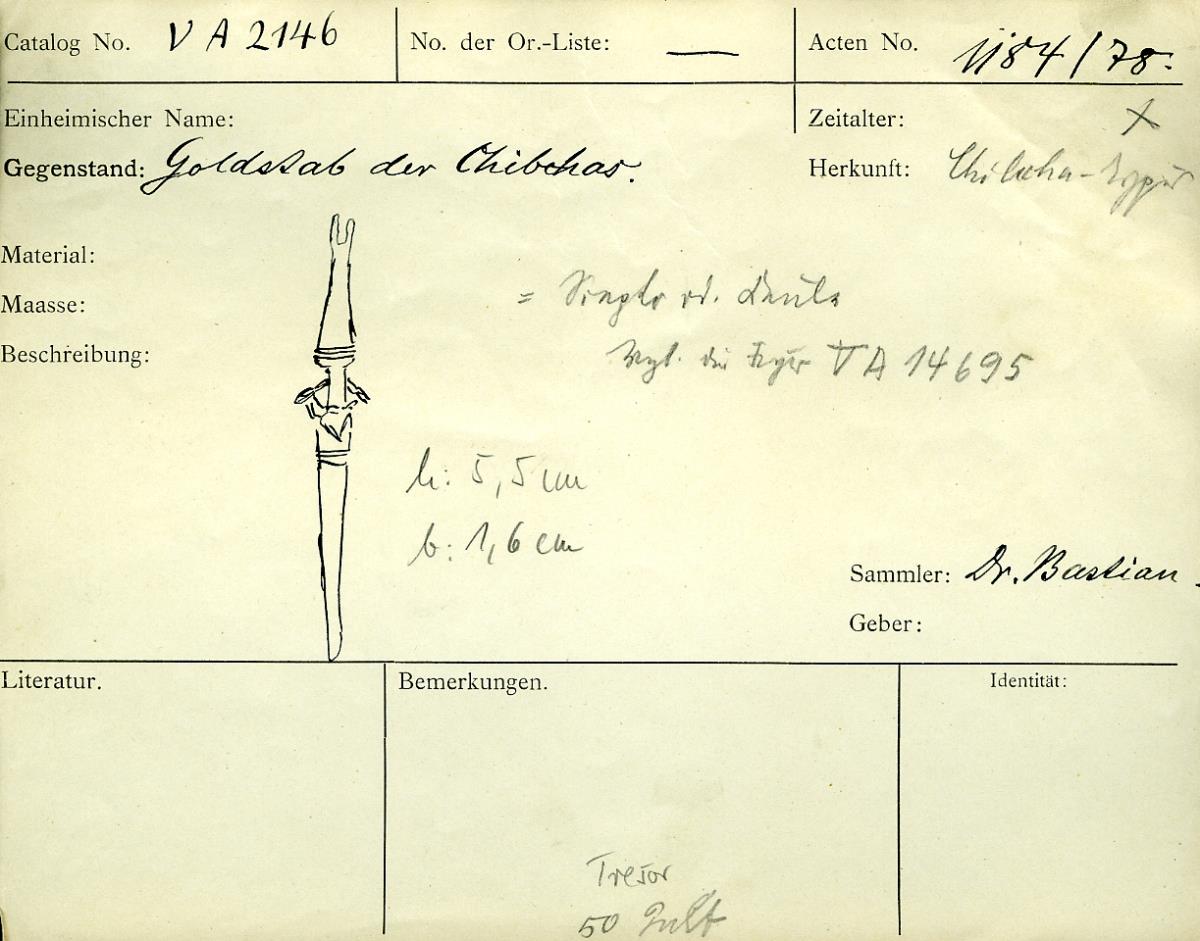 Catalog No. V A 2146
No. der Or.-Liste: —
Acten No. 1184/78.
Einheimischer Name:
Zeitalter:
Gegenstand: Goldstab der Chibchas.
Herkunft: Chibcha-
Material:
Maasse:
=
Beschreibung:
V A 14695
h: 5,5 cm
b: 1,6 cm
Sammler: Dr. Bastian
Geber:
Literatur.
Bemerkungen.
Identität:
Tresor
50 Pult